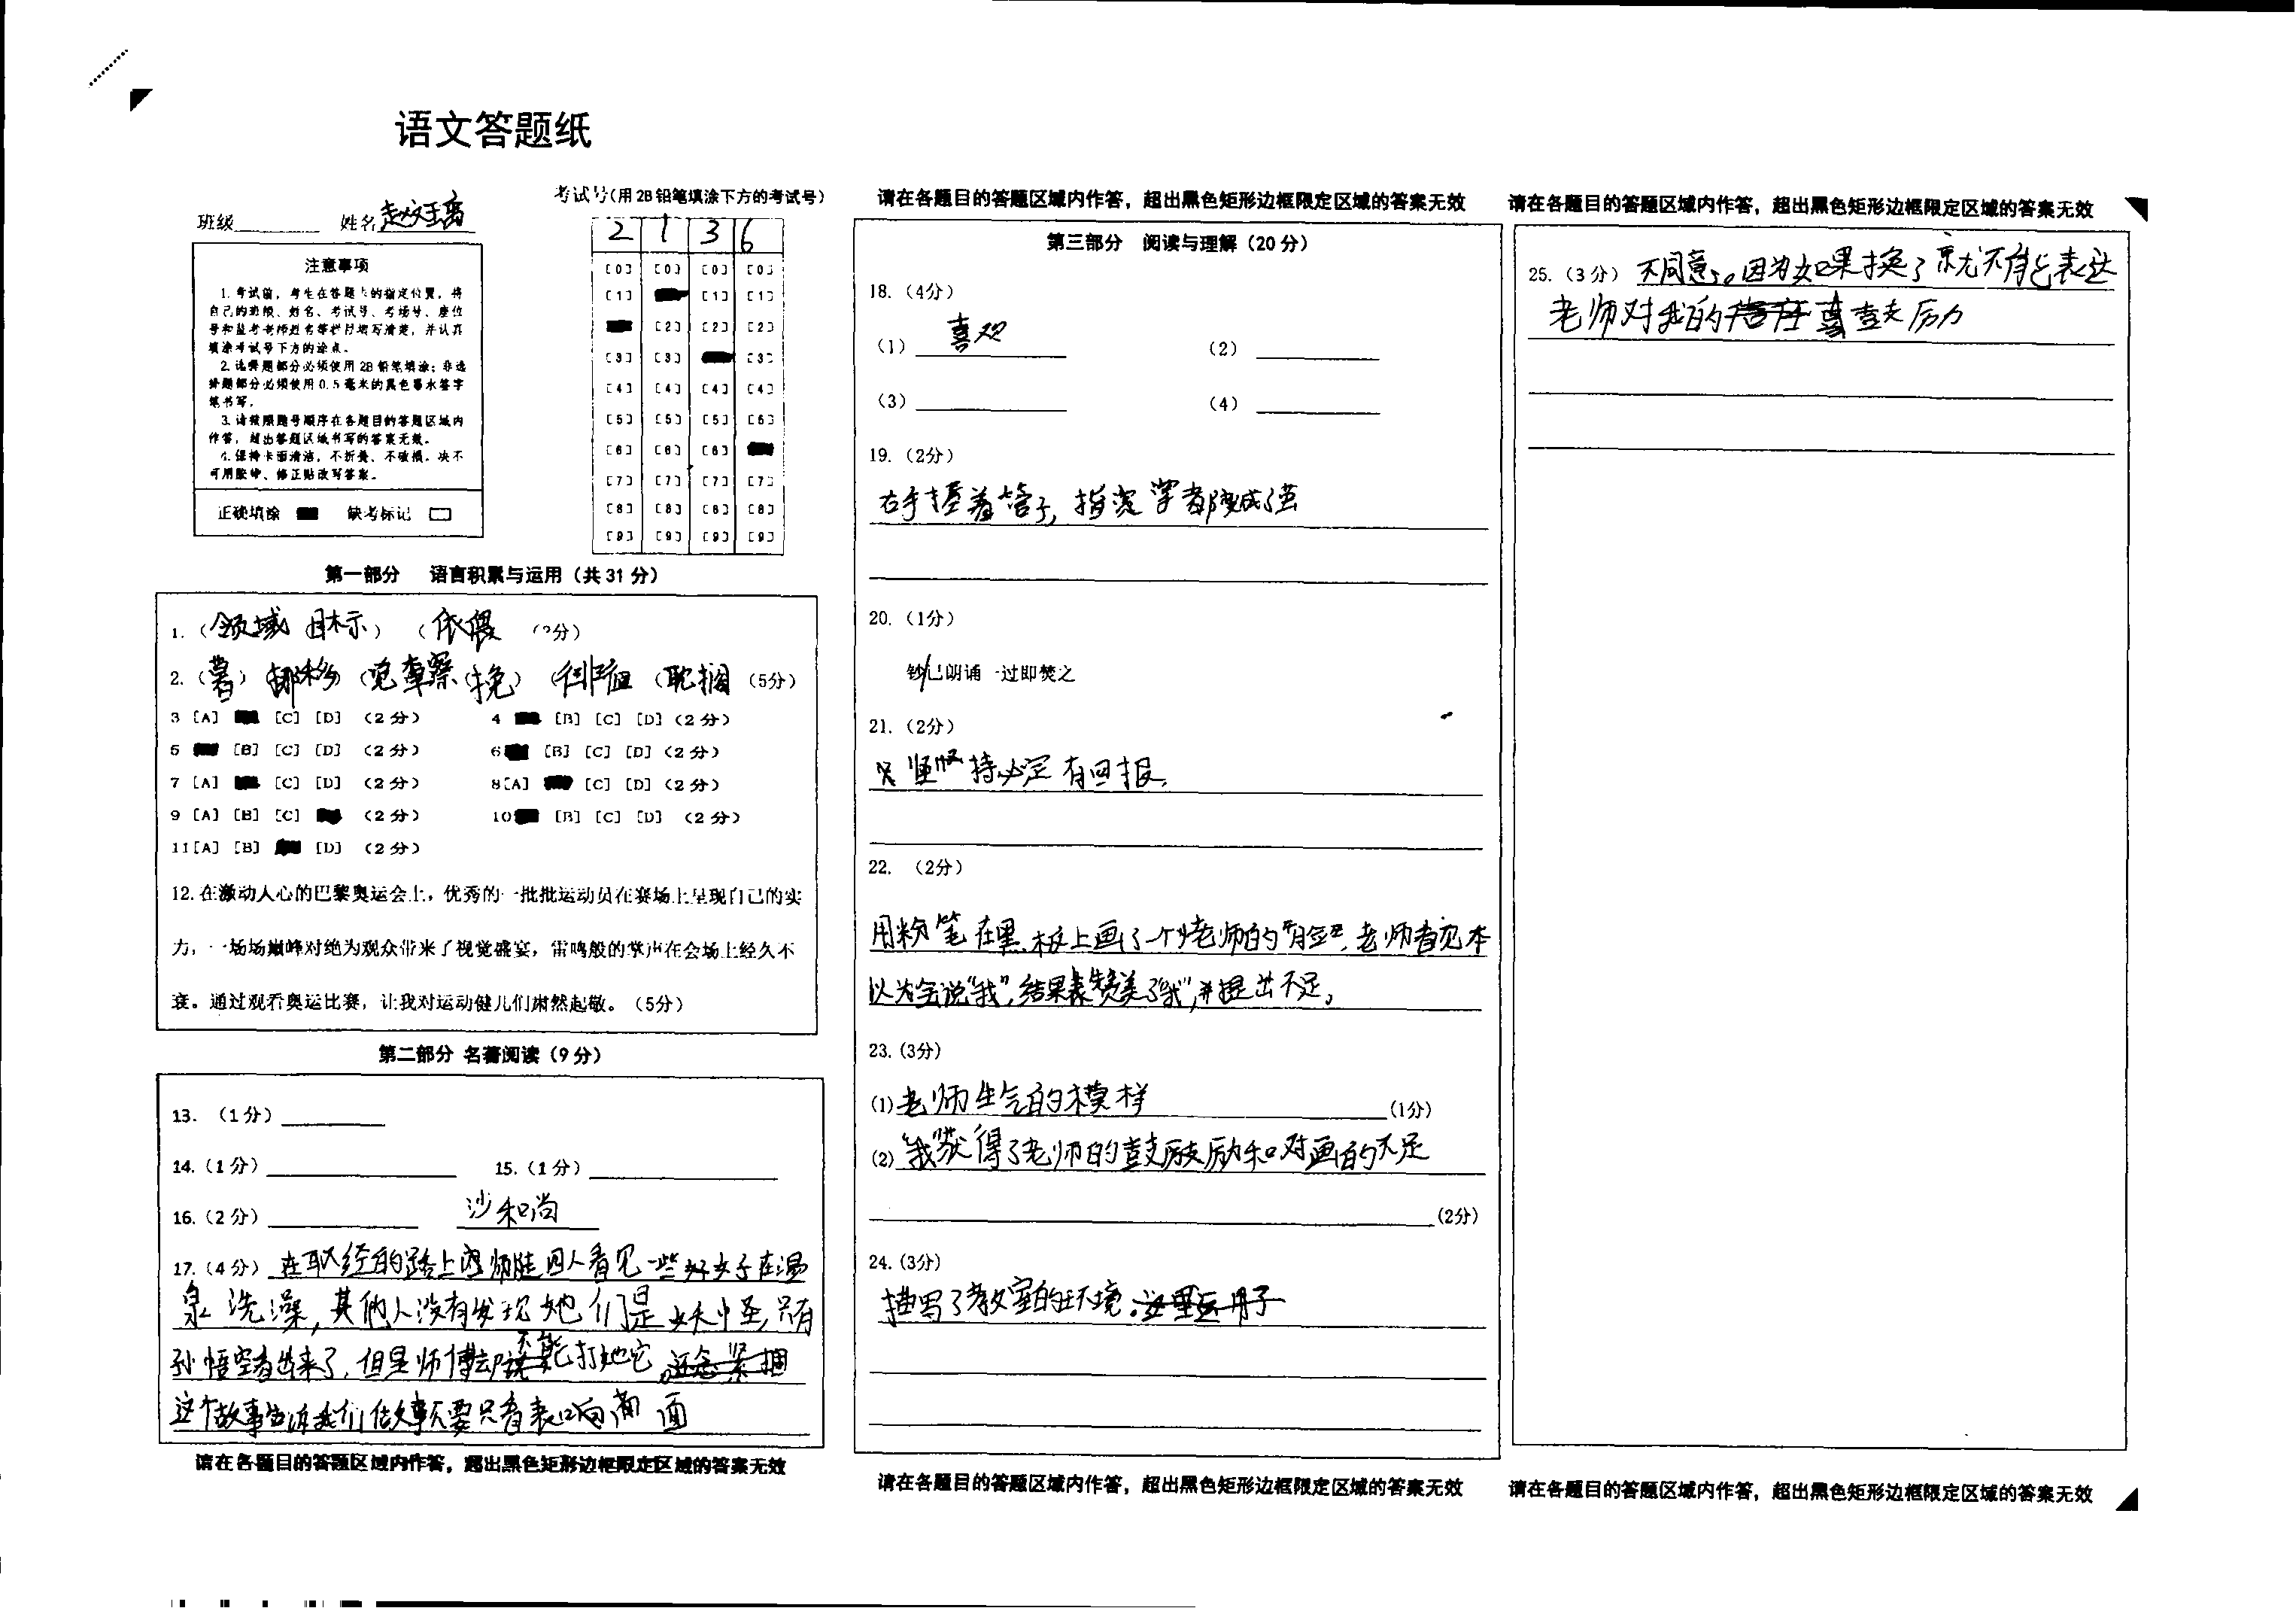 语文答题纸
班级 姓名
考试号(用2B铅笔填涂下方的考试号)
2 1 3 6
注意事项
1. 考试前，考生在答题卡的指定位置，将
自己的班级、姓名、考试号、考场号、座位
号和监考老师姓名等栏目填写清楚，并认真
填涂考试号下方的涂点。
2. 选择题部分必须使用2B铅笔填涂；非选
择题部分必须使用0.5毫米的黑色墨水签字
笔书写。
3. 请按照题号顺序在各题目的答题区域内
作答，超出答题区域书写的答案无效。
4. 保持卡面清洁，不折叠、不破损。决不
可用胶带、修正贴改写答案。
正确填涂 缺考标记
[0] [0] [0] [0]
[1] [1] [1]
[2] [2] [2]
[3] [3] [3]
[4] [4] [4] [4]
[5] [5] [5] [5]
[6] [6] [6]
[7] [7] [7] [7]
[8] [8] [8] [8]
[9] [9] [9] [9]
第一部分 语言积累与运用（共31分）
1.（领域 目标示）（依偎 分）
2.（著） 挪移（觉察 挽）（徘徊（耽搁（5分）
3 [A] [C] [D] （2分） 4 [B] [C] [D]（2分）
5 [B] [C] [D] （2分） 6 [B] [C] [D]（2分）
7 [A] [C] [D] （2分） 8[A] [C] [D]（2分）
9 [A] [B] [C] （2分） 10 [B] [C] [D] （2分）
11[A] [B] [D] （2分）
12.在激动人心的巴黎奥运会上，优秀的一批批运动员在赛场上呈现自己的实
力，一场场巅峰对绝为观众带来了视觉盛宴，雷鸣般的掌声在会场上经久不
衰。通过观看奥运比赛，让我对运动健儿们肃然起敬。（5分）
第二部分 名著阅读（9分）
13. （1分）
14.（1分） 15.（1分）
16.（2分） 沙和尚
17.（4分）在取经的路上 师徒四人看见一些好女子在温
泉洗澡，其他人没有发现她们是 ，只有
孙悟空看出来了，但是师傅却不能打她它
这个故事告诉我们做事不要只看表 面
请在各题目的答题区域内作答，超出黑色矩形边框限定区域的答案无效
请在各题目的答题区域内作答，超出黑色矩形边框限定区域的答案无效
第三部分 阅读与理解（20分）
18.（4分）
（1）喜欢 （2）
（3） （4）
19.（2分）
右手 着管子，指 都变成了
20.（1分）
钞/已朗诵一过即焚之
21.（2分）
只 坚持必定有回报。
22. （2分）
用粉笔在黑板上画了一个老师的 ，老师看见本
以为会说“我”，结果 赞美了“我”，并提出不足，
23.（3分）
(1) 老师生气的模样 (1分)
(2) “我”获得了老师的鼓励和对画的不足
(2分)
24.（3分）
描写了教室的环境。
请在各题目的答题区域内作答，超出黑色矩形边框限定区域的答案无效
请在各题目的答题区域内作答，超出黑色矩形边框限定区域的答案无效
25.（3分）不同意。因为如果换了就不能表达
老师对我的 鼓励
请在各题目的答题区域内作答，超出黑色矩形边框限定区域的答案无效